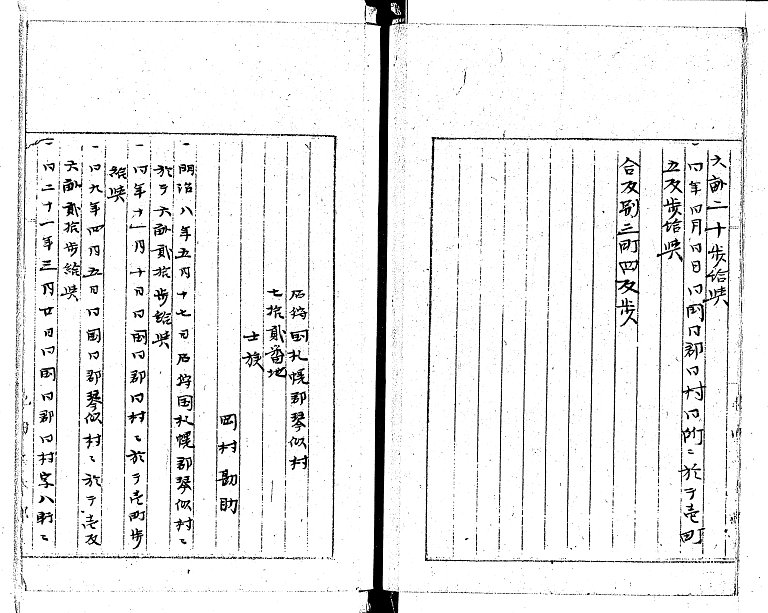 六畝二十歩給与
一仝年仝月仝日仝国仝郡仝村仝所ニ於テ壱町
五反歩給与
合反別三町四反歩
石狩国札幌郡琴似村
七拾貳番地
士族
岡村勘助
一明治八年五月十七日石狩国札幌郡琴似村ニ
於テ六畝貳拾歩給与
一仝年十一月十日仝国仝郡仝村ニ於テ壱町歩
給与
一仝九年四月五日仝国仝郡琴似村ニ於テ壱反
六畝貳拾歩給与
一仝二十一年三月廿日仝国仝郡仝村字八軒ニ